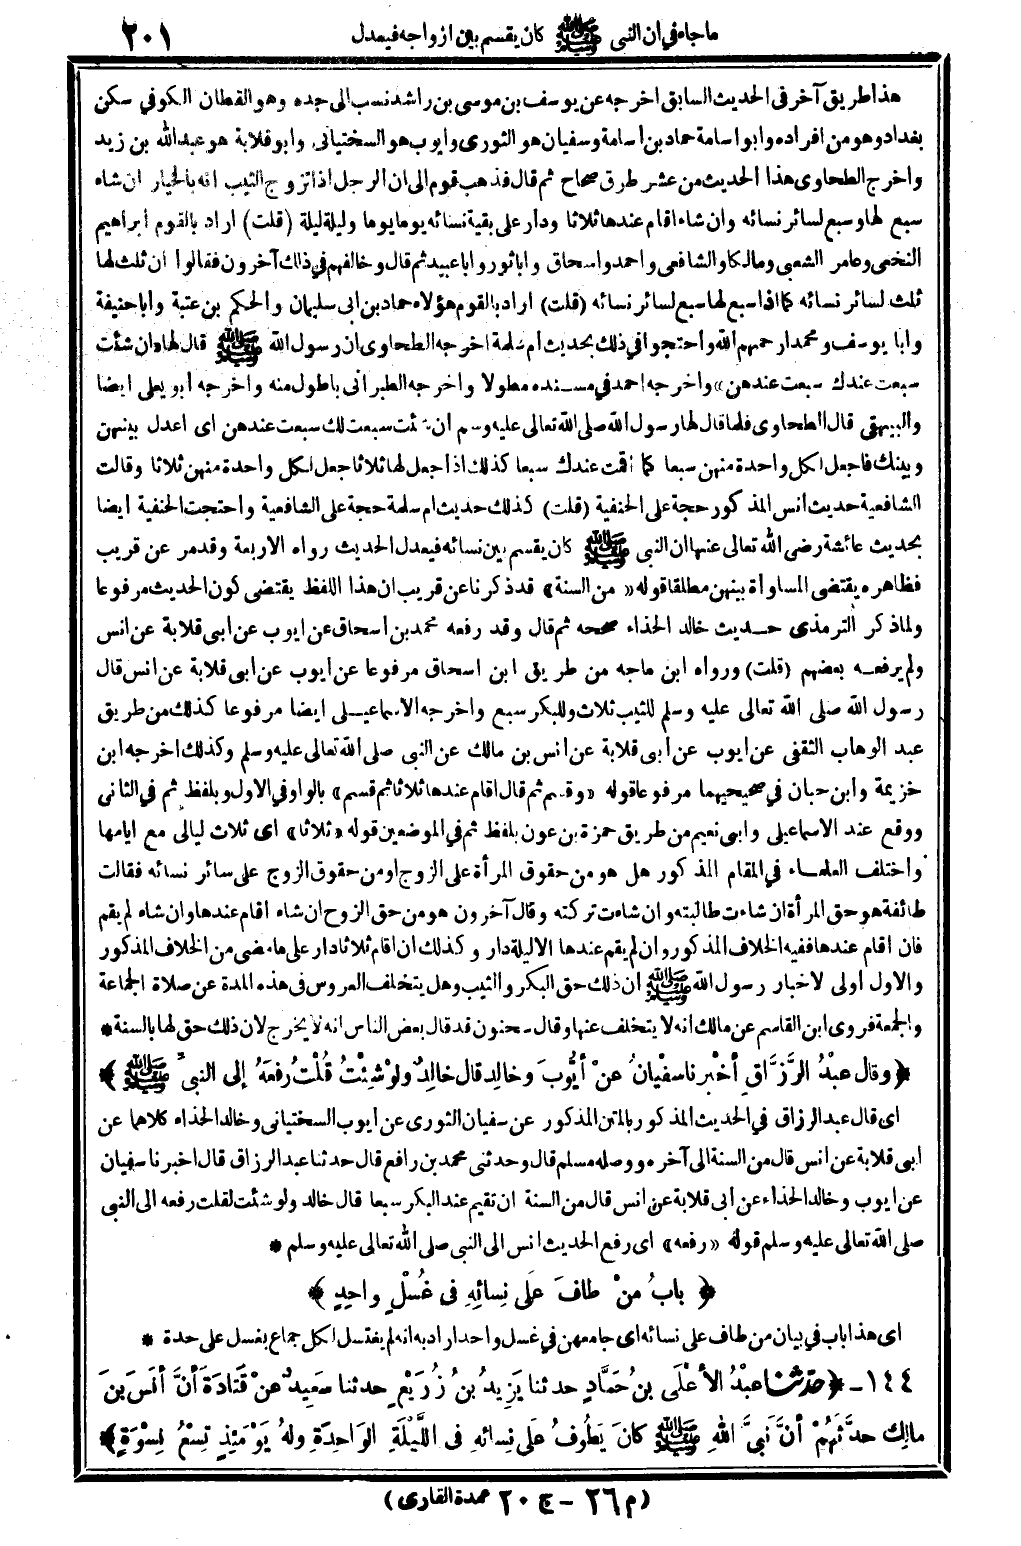 ما جاء في ان النبي ﷺ كان يقسم بين ازواجه فيعدل ٢٠١
هذا طريق آخر في الحديث السابق اخرجه عن يوسف بن موسى بن راشد نسب الى جده وهو القطان الكوفي سكن
بغداد وهو من افراده وابو اسامة حماد بن اسامة وسفيان هو الثوري وايوب هو السختياني وابو قلابة هو عبد الله بن زيد
واخرج الطحاوى هذا الحديث من عشر طرق صحاح ثم قال فذهب قوم الى ان الرجل اذا تزوج الثيب انه بالخيار ان شاء
سبع لها وسبع لسائر نسائه وان شاء اقام عندها ثلاثا ودار على بقية نسائه يوما يوما وليلة ليلة (قلت) اراد بالقوم ابراهيم
النخعى وعامر الشعبى ومالكا والشافعى واحمد واسحاق وابا ثور وابا عبيد ثم قال وخالفهم في ذلك آخرون فقالوا ان ثلث لها
ثلث لسائر نسائه كما اذا سبع لها سبع لسائر نسائه (قلت) اراد بالقوم هؤلاء حماد بن ابى سليمان والحكم بن عتبة وابا حنيفة
وابا يوسف ومحمدا رحمهم الله واحتجوا في ذلك بحديث ام سلمة اخرجه الطحاوى ان رسول الله ﷺ قال لها «ان شئت
سبعت عندك سبعت عندهن» واخرجه احمد في مسنده مطولا واخرجه الطبرانى باطول منه واخرجه ابو يعلى ايضا
والبيهقى قال الطحاوى فلما قال لها رسول الله صلى الله تعالى عليه وسم ان شئت سبعت لك سبعت عندهن اى اعدل بينهن
وبينك فاجعل لكل واحدة منهن سبعا كما اقمت عندك سبعا كذلك اذا جعل لها ثلاثا جعل لكل واحدة منهن ثلاثا وقالت
الشافعية حديث انس المذكور حجة على الحنفية (قلت) كذلك حديث ام سلمة حجة على الشافعية واحتجت الحنفية ايضا
بحديث عائشة رضى الله تعالى عنها ان النبى ﷺ كان يقسم بين نسائه فيعدل الحديث رواه الاربعة وقد مر عن قريب
فظاهره يقتضى المساواة بينهن مطلقا قوله «من السنة» قد ذكرنا عن قريب ان هذا اللفظ يقتضى كون الحديث مرفوعا
ولما ذكر الترمذى حديث خالد الحذاء صححه ثم قال وقد رفعه محمد بن اسحاق عن ايوب عن ابى قلابة عن انس
ولم يرفعه بعضهم (قلت) ورواه ابن ماجه من طريق ابن اسحاق مرفوعا عن ايوب عن ابى قلابة عن انس قال
رسول الله صلى الله تعالى عليه وسلم للثيب ثلاث وللبكر سبع واخرجه الاسماعيلى ايضا مرفوعا كذلك من طريق
عبد الوهاب الثقفى عن ايوب عن ابى قلابة عن انس بن مالك عن النبى صلى الله تعالى عليه وسلم وكذلك اخرجه ابن
خزيمة وابن حبان في صحيحيهما مرفوعا قوله «وقسم ثم قال اقام عندها ثلاثا ثم قسم» بالواو في الاول وبلفظ ثم في الثانى
ووقع عند الاسماعيلى وابى نعيم من طريق حمزة بن عون بلفظ ثم في الموضعين قوله «ثلاثا» اى ثلاث ليالى مع ايامها
واختلف العلماء في المقام المذكور هل هو من حقوق المرأة على الزوج او من حقوق الزوج على سائر نسائه فقالت
طائفة هو حق المرأة ان شاءت طالبته وان شاءت تركته وقال آخرون هو من حق الزوج ان شاء اقام عندها وان شاء لم يقم
فان اقام عندها ففيه الخلاف المذكور وان لم يقم عندها الا ليلة دار وكذلك ان اقام ثلاثا دار على ما مضى من الخلاف المذكور
والاول أولى لاخبار رسول الله ﷺ ان ذلك حق البكر والثيب وهل يتخلف العروس في هذه المدة عن صلاة الجماعة
والجمعة فروى ابن القاسم عن مالك انه لا يتخلف عنها وقال سحنون قد قال بعض الناس انه لا يخرج لان ذلك حق لها بالسنة *
﴿ وقال عبْدُ الرَّزَّاقِ أخْبرنا سفْيانُ عنْ أيُّوبَ وخالِد قال خالِدٌ ولوْ شِئْتُ قُلْتُ رفعَهُ إلى النبيِّ ﷺ ﴾
اى قال عبد الرزاق في الحديث المذكور بالمتن المذكور عن سفيان الثورى عن ايوب السختيانى وخالد الحذاء كلاهما عن
ابى قلابة عن انس قال من السنة الى آخره ووصله مسلم قال وحدثنى محمد بن رافع قال حدثنا عبد الرزاق قال اخبرنا سفيان
عن ايوب وخالد الحذاء عن ابى قلابة عن انس قال من السنة ان تقيم عند البكر سبعا قال خالد ولو شئت لقلت رفعه الى النبى
صلى الله تعالى عليه وسلم قوله «رفعه» اى رفع الحديث انس الى النبى صلى الله تعالى عليه وسلم *
﴿ بابُ منْ طافَ علَى نِسائِهِ فى غُسْلٍ واحِدٍ ﴾
اى هذا باب في بيان من طاف على نسائه اى جامعهن في غسل واحد اراد به انه لم يغتسل لكل جماع بغسل على حدة *
١٤٤ - ﴿ حدثنا عبْدُ الأعْلَى بنُ حَمَّادٍ حدثنا يَزِيدُ بنُ زُرَيْعٍ حدثنا سَعِيدٌ عنْ قَتادَةَ أنَّ أنَسَ بنَ
مالِكٍ حدَّثَهُمْ أنَّ نَبيَّ اللهِ ﷺ كانَ يَطُوفُ علَى نِسائِهِ فى اللَّيْلَةِ الوَاحِدَةِ ولهُ يَوْمَئِذٍ تِسْعُ نِسْوَةٍ ﴾
(م ٢٦ - ج ٢٠ عمدة القارى)